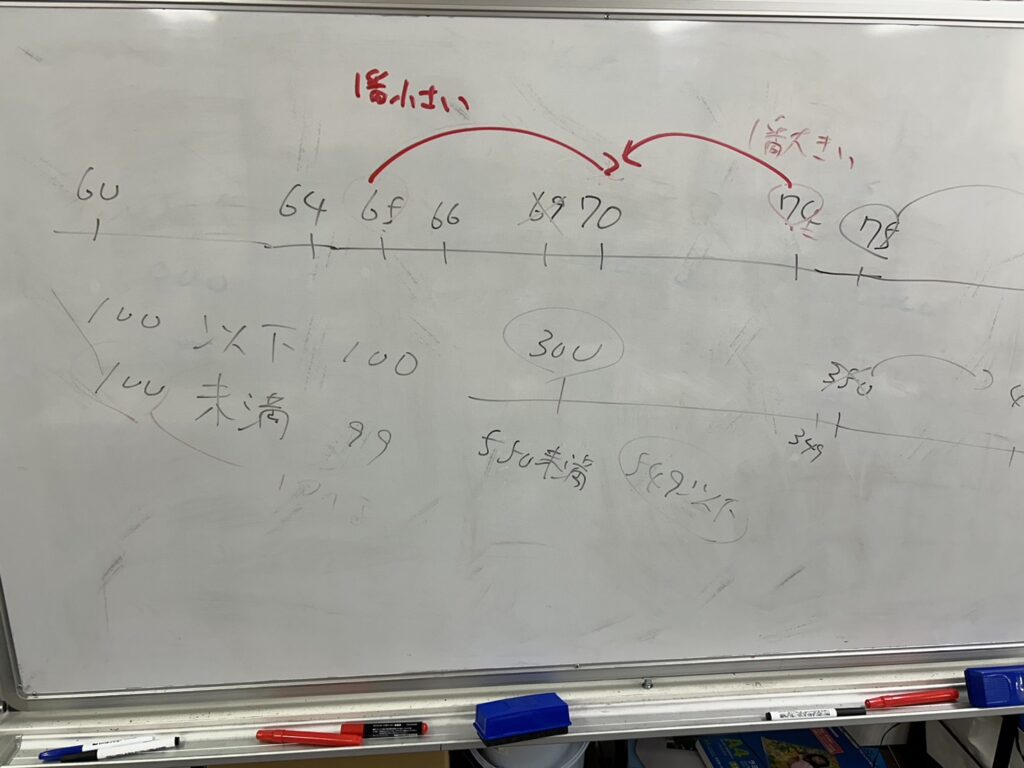 1番小さい
1番大きい
60 64 65 66 69 70 74 75
100 以下 100
100 未満 99
300
350
349
550未満 549以下